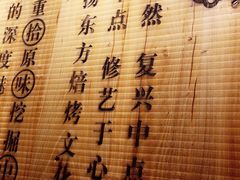 然 复兴中点
中点 修艺于心
扬东方焙烤文化
重拾原味挖掘中
的深度